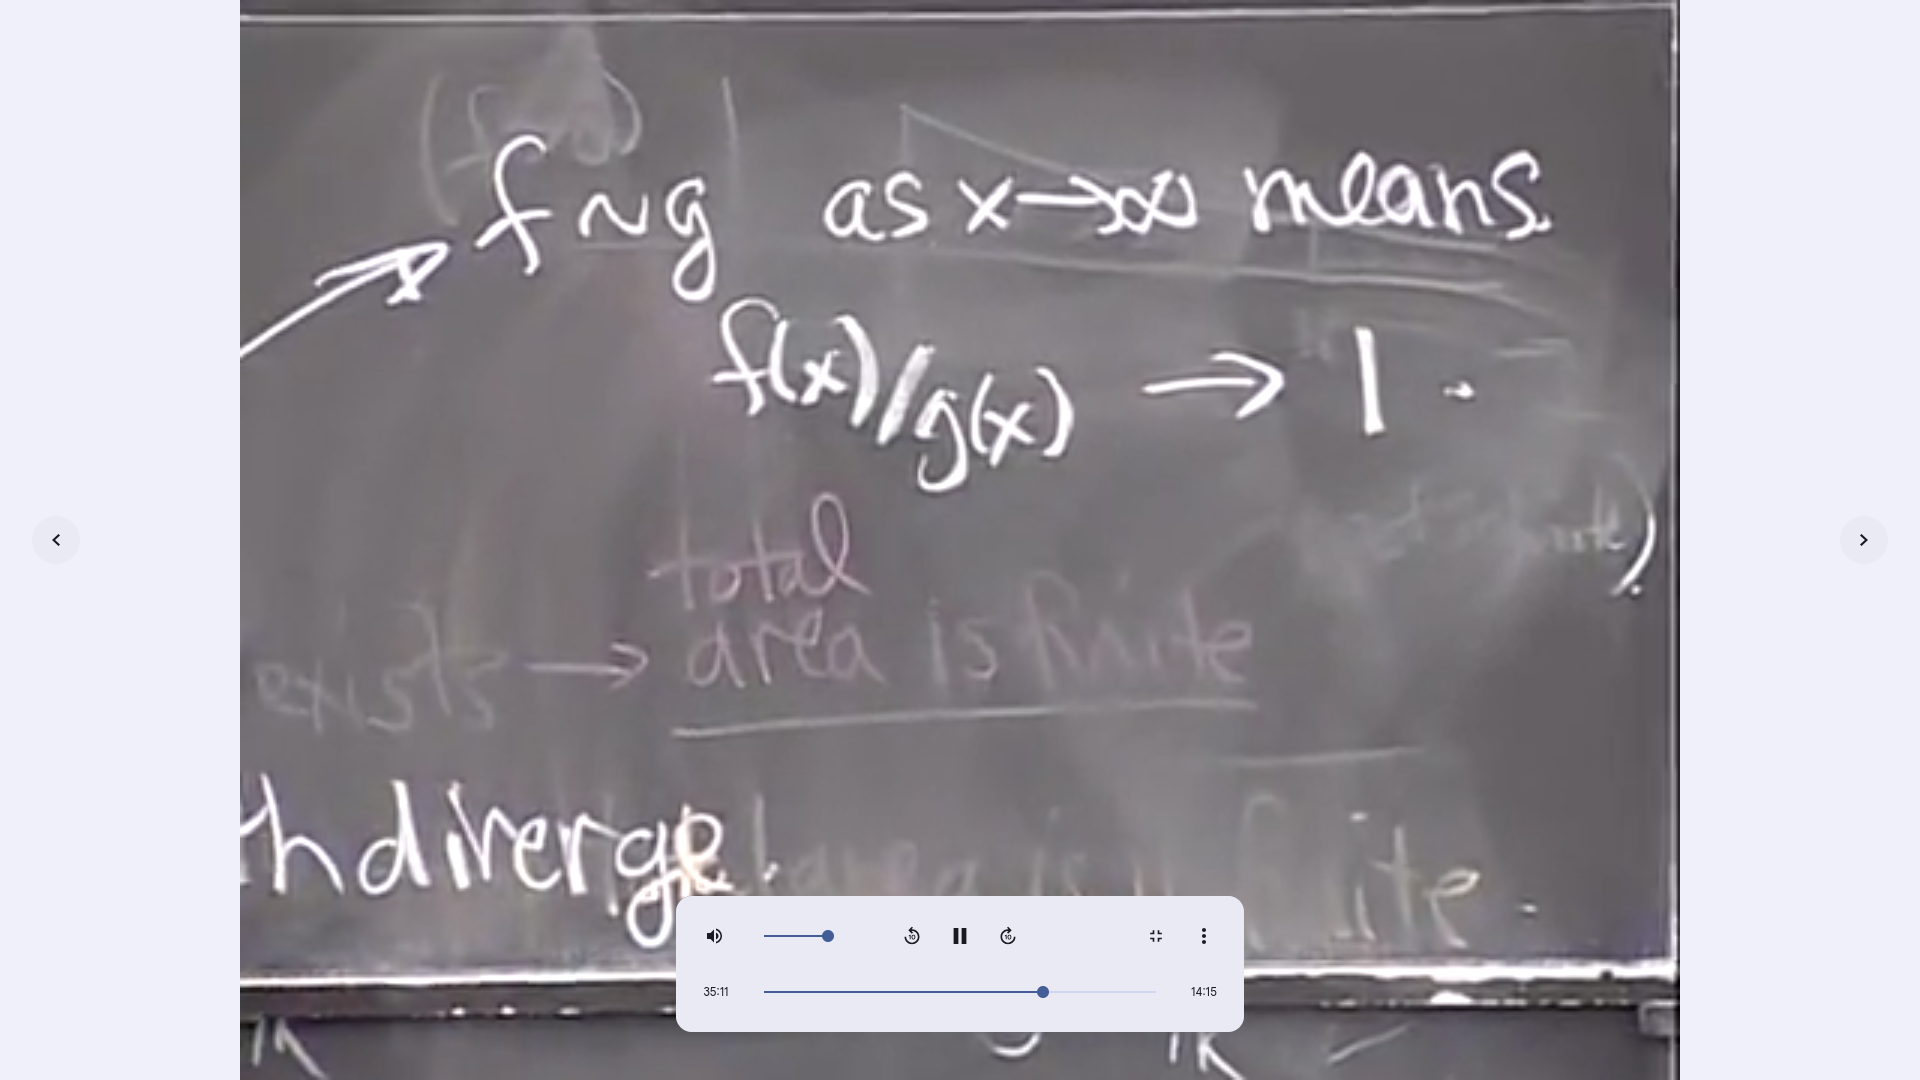 f ~ g as x → ∞ means
f(x)/g(x) → 1.
total
exists → area is finite
h diverge.
35:11
14:15